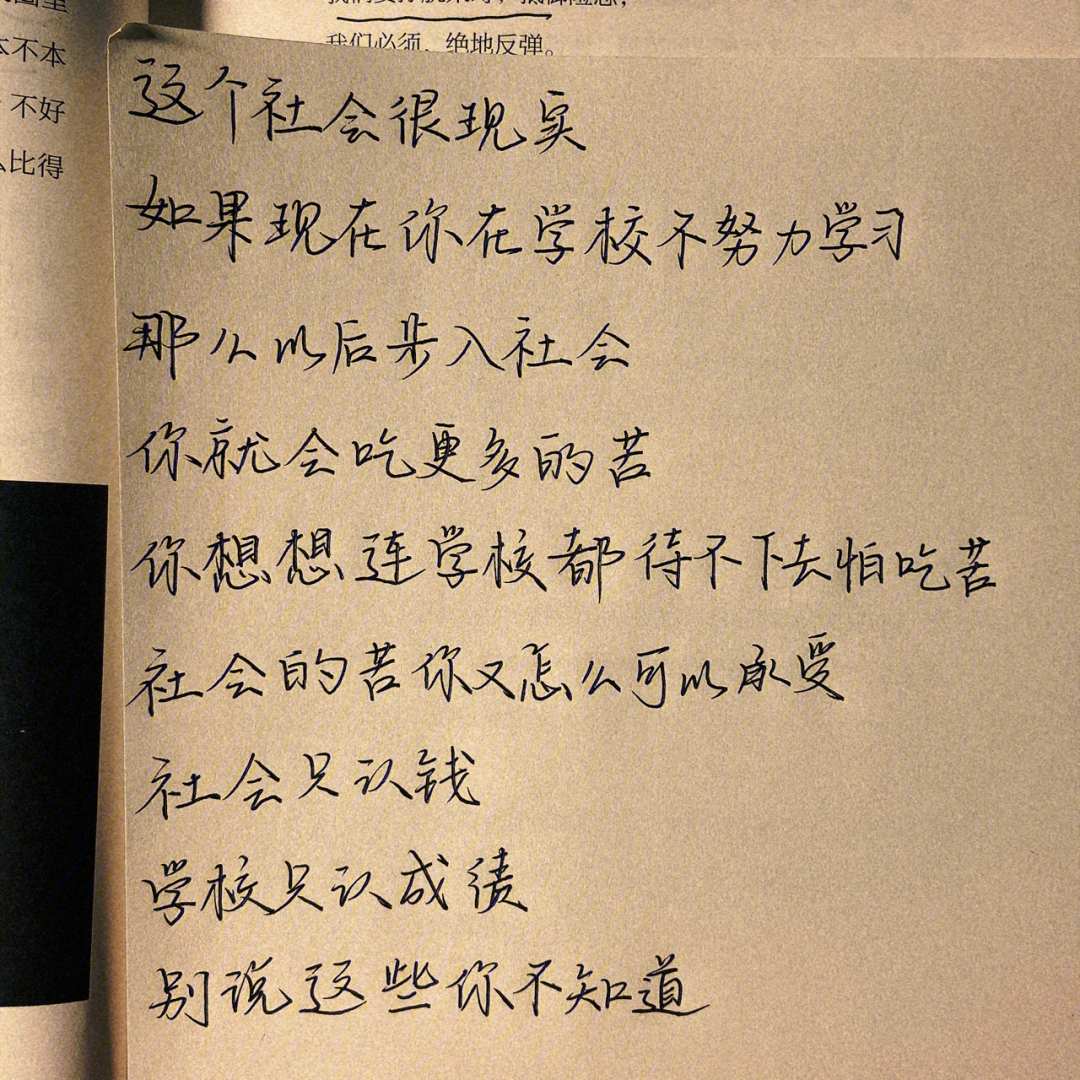 我们必须，绝地反弹。
本不本
不好
么比得
这个社会很现实
如果现在你在学校不努力学习
那么以后步入社会
你就会吃更多的苦
你想想连学校都待不下去怕吃苦
社会的苦你又怎么可以承受
社会只认钱
学校只认成绩
别说这些你不知道